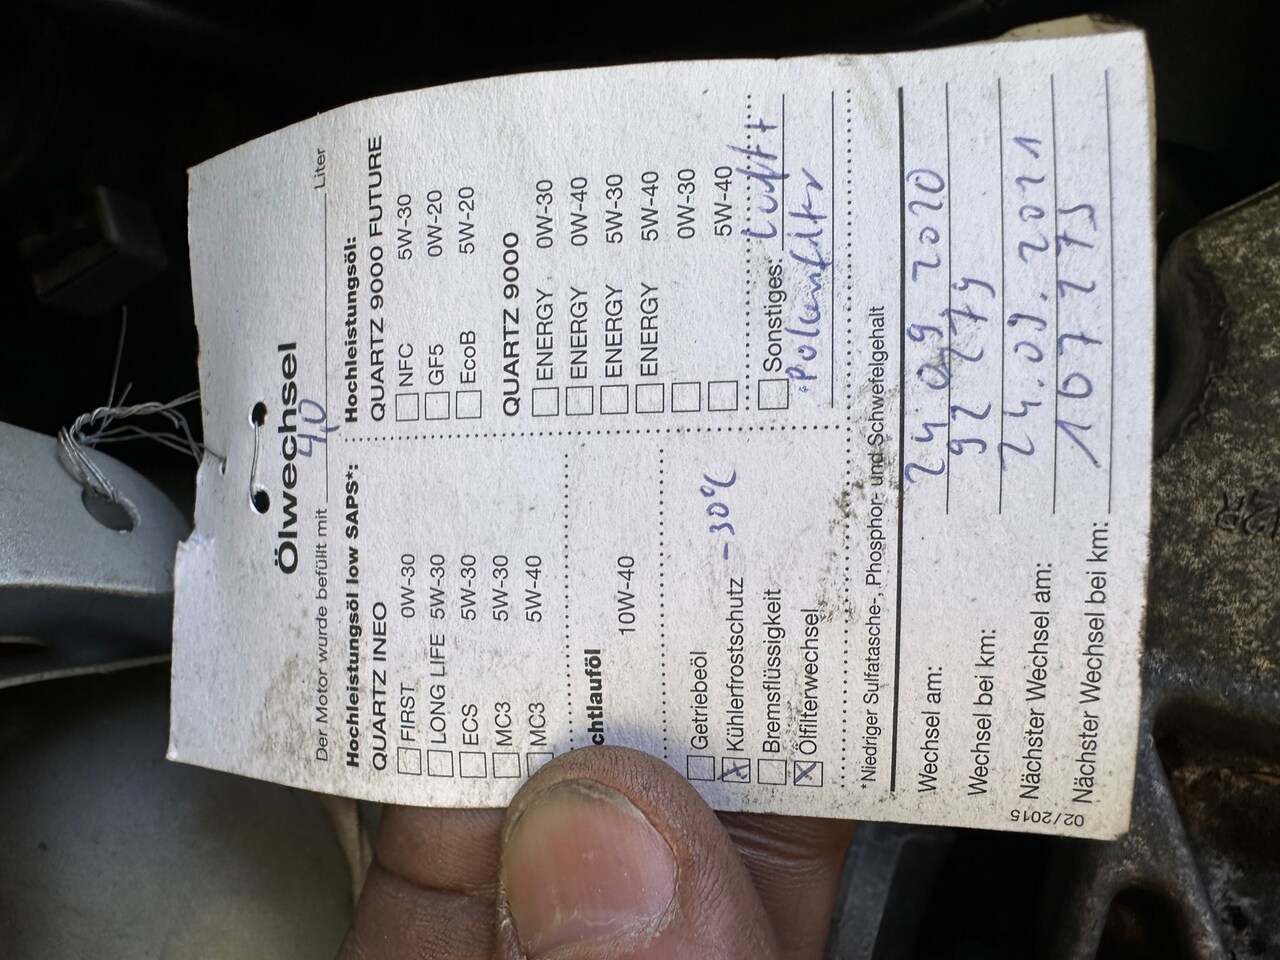 Ölwechsel
Der Motor wurde befüllt mit 4,0 Liter
Hochleistungsöl low SAPS*:
QUARTZ INEO
FIRST 0W-30
LONG LIFE 5W-30
ECS 5W-30
MC3 5W-30
MC3 5W-40
chtlauföl
10W-40
Getriebeöl
Kühlerfrostschutz -30°C
Bremsflüssigkeit
Ölfilterwechsel
Hochleistungsöl:
QUARTZ 9000 FUTURE
NFC 5W-30
GF5 0W-20
EcoB 5W-20
QUARTZ 9000
ENERGY 0W-30
ENERGY 0W-40
ENERGY 5W-30
ENERGY 5W-40
0W-30
5W-40
Sonstiges: Luft +
Pollenfilter
*Niedriger Sulfatasche-, Phosphor- und Schwefelgehalt
Wechsel am: 24.09.2020
Wechsel bei km: 92 275
Nächster Wechsel am: 24.09.2021
Nächster Wechsel bei km: 107 275
02/2015